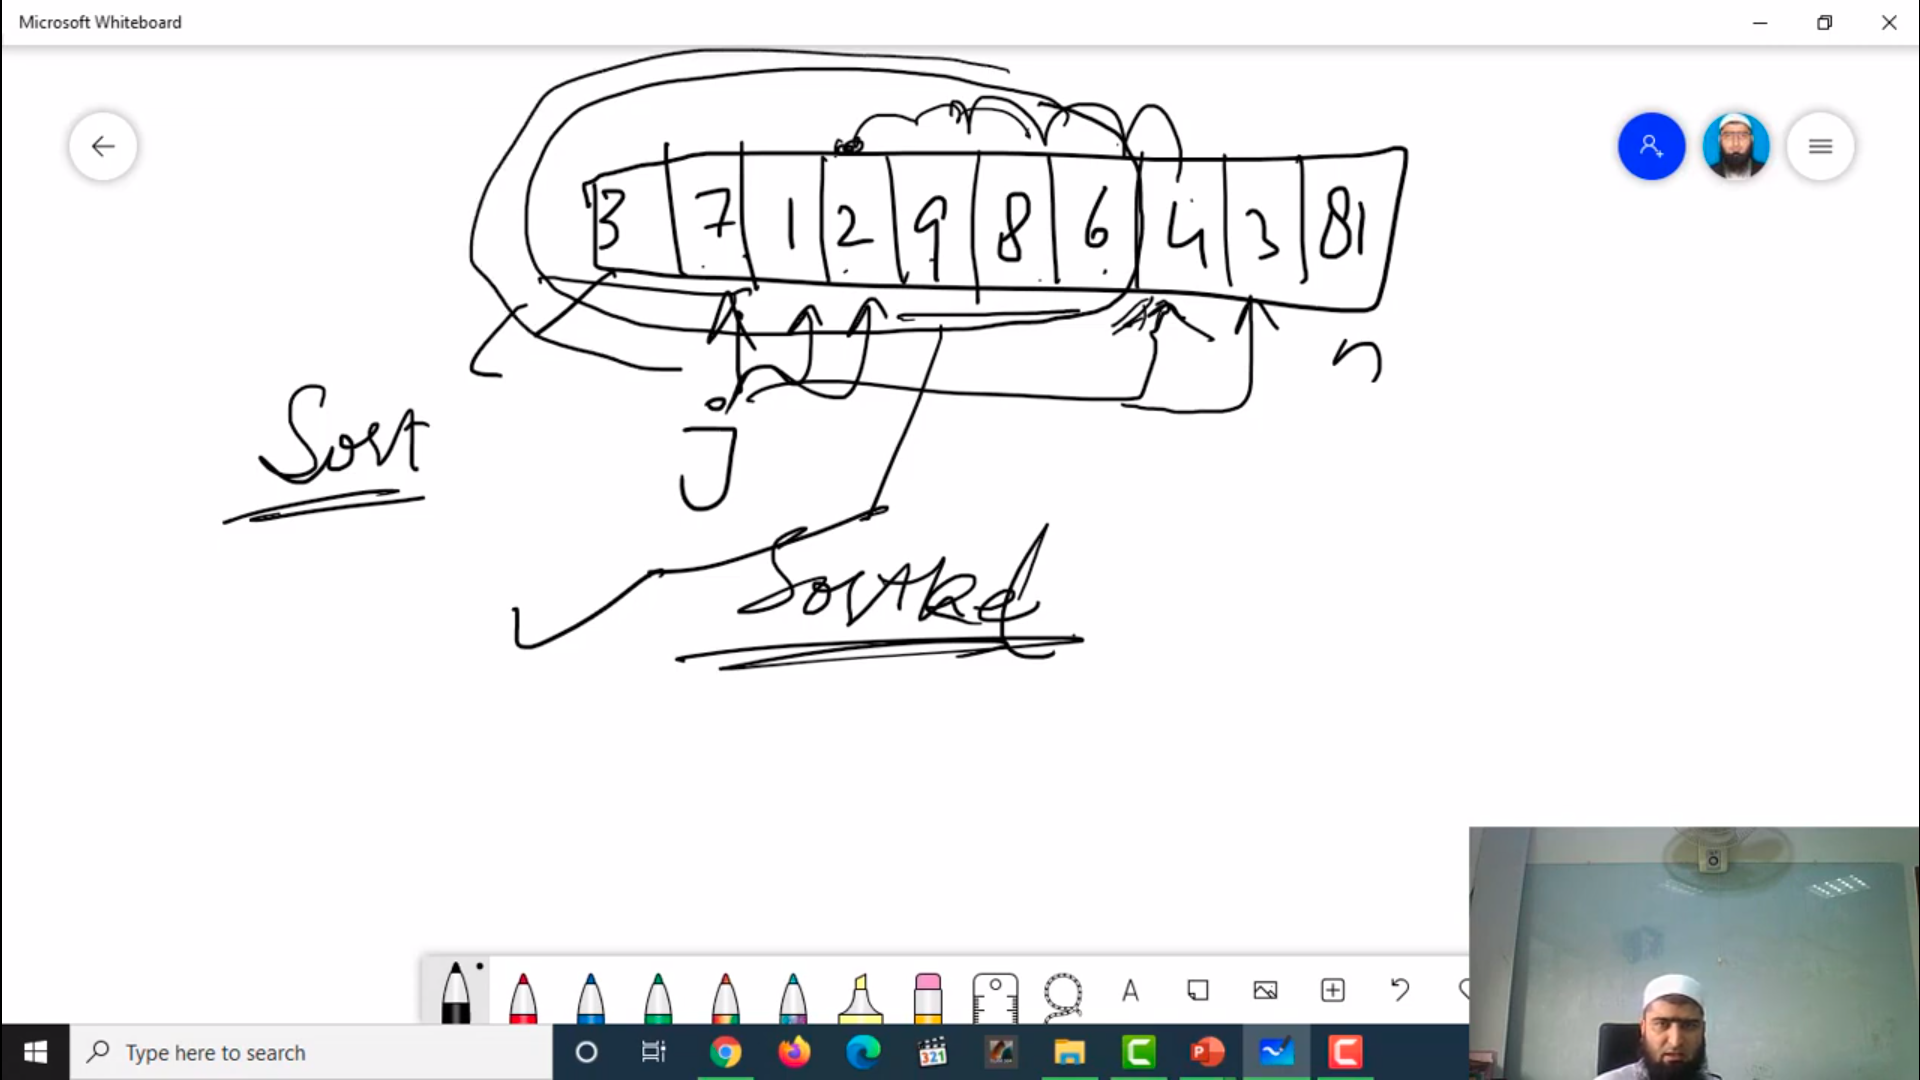 Microsoft Whiteboard
3 7 1 2 9 8 6 4 3 81
n
Sort
J
Sorted
A
Type here to search
321